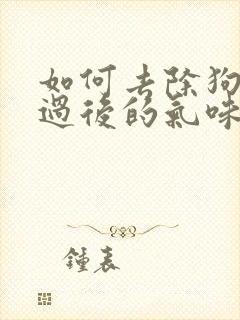 如何去除狗
過後的氣味
鍾表